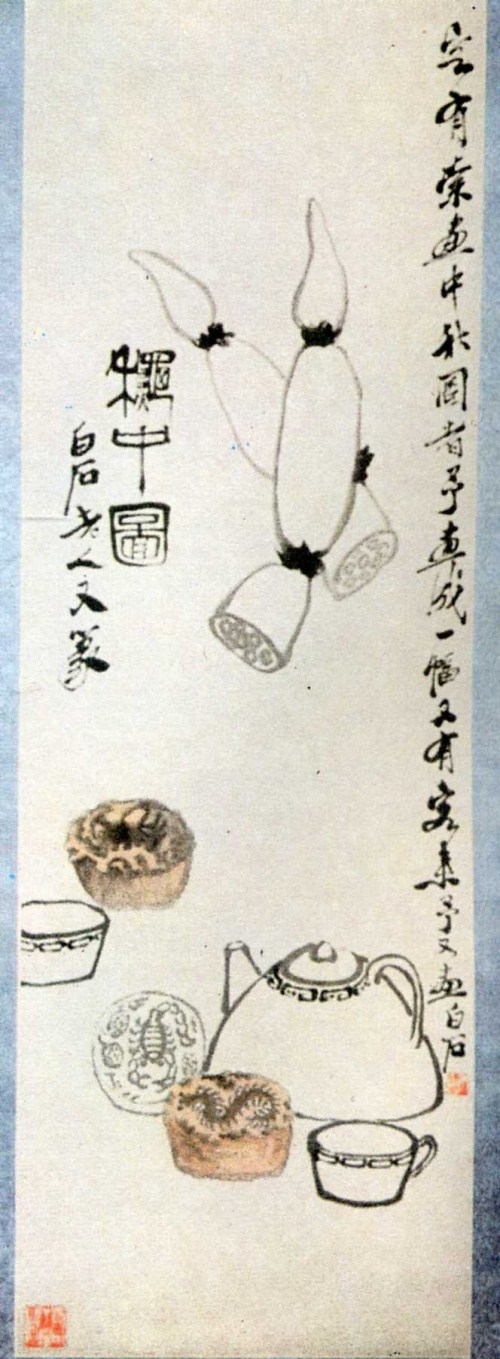 客有索畫中秋圖者予畫成一幅又有客來予又畫白石
龝中圖
白石老人又篆